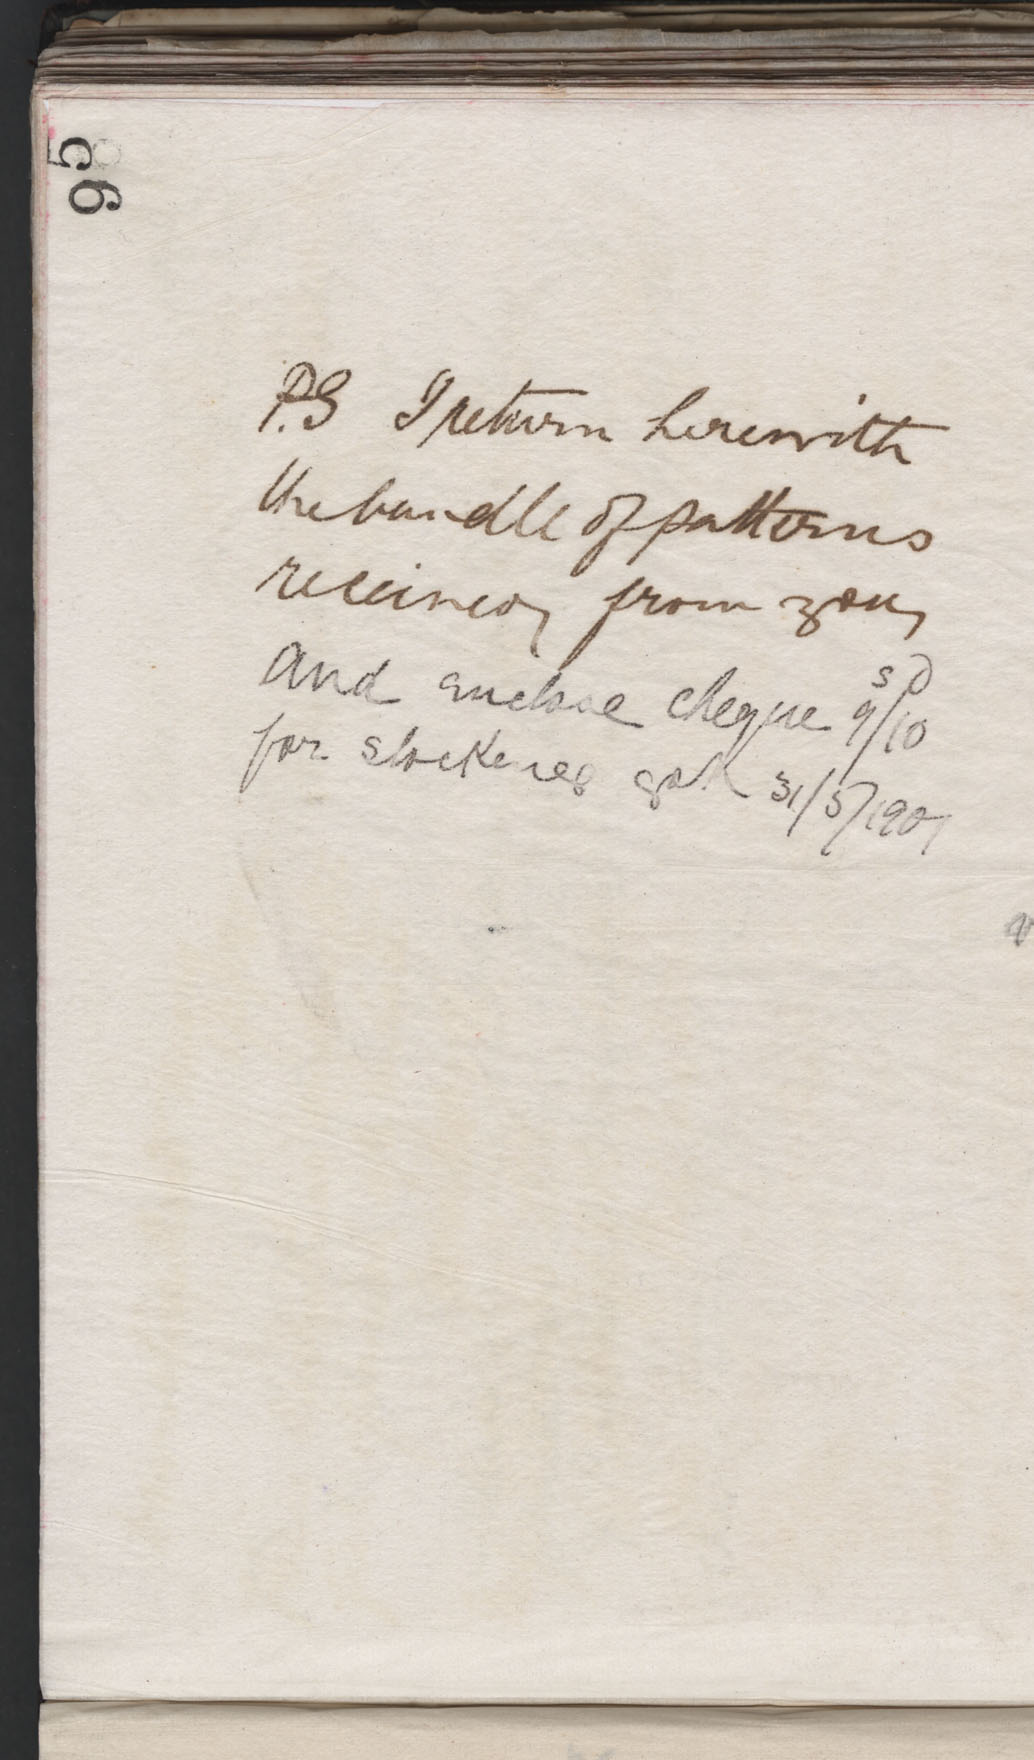 95
P.S I return herewith
the bundle of patterns
received from you,
and enclose cheque
s D
9/10
for stockings 31/5/1907